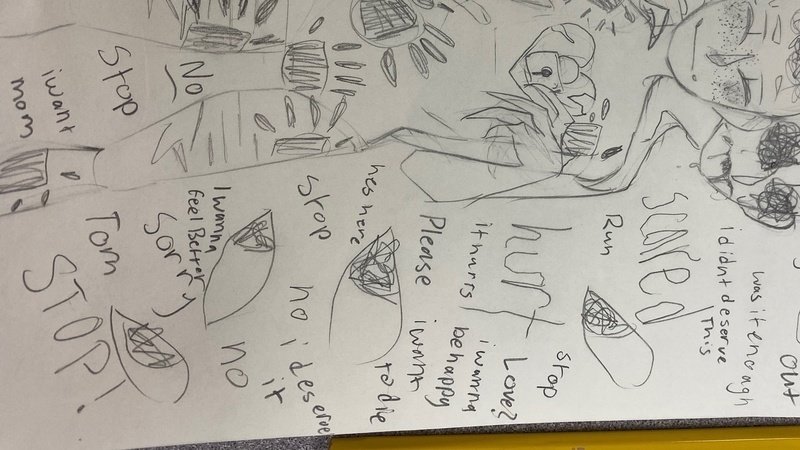 out
was it enough
i didnt deserve
This
scared
Run
Stop
Love?
hurt
it hurts
i wanna
be happy
Please
i want
to die
hes here
Stop
no i deserve
it
I wanna
feel Better
Sorry
no
No
Stop
i want
mom
STOP!